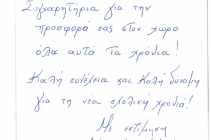 Συγχαρητήρια για την
προσφορά σας στον χώρο
όλα αυτά τα χρόνια!
Καλή συνέχεια και καλή δύναμη
για τη νέα σχολική χρονιά!
Με εκτίμηση